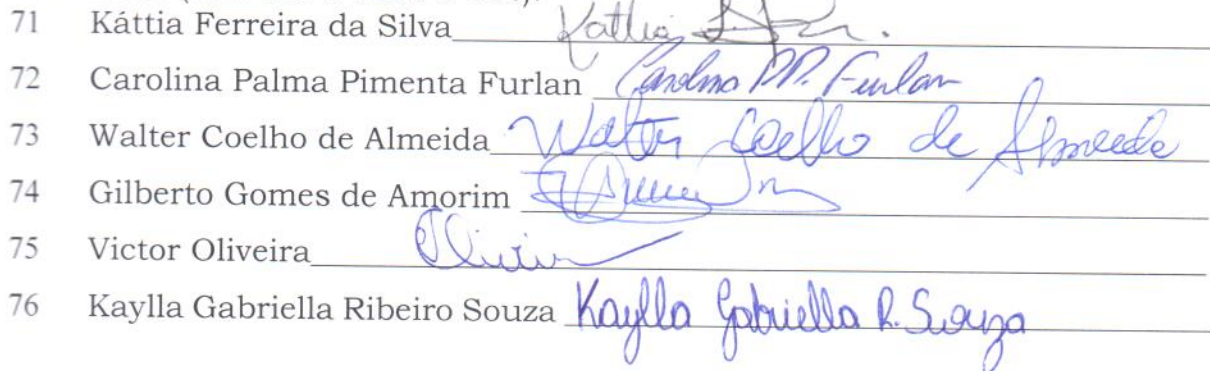 71 Káttia Ferreira da Silva Kattia
72 Carolina Palma Pimenta Furlan Carolina PP. Furlan
73 Walter Coelho de Almeida Walter Coelho de Almeida
74 Gilberto Gomes de Amorim
75 Victor Oliveira Oliveira
76 Kaylla Gabriella Ribeiro Souza Kaylla Gabriella R. Souza